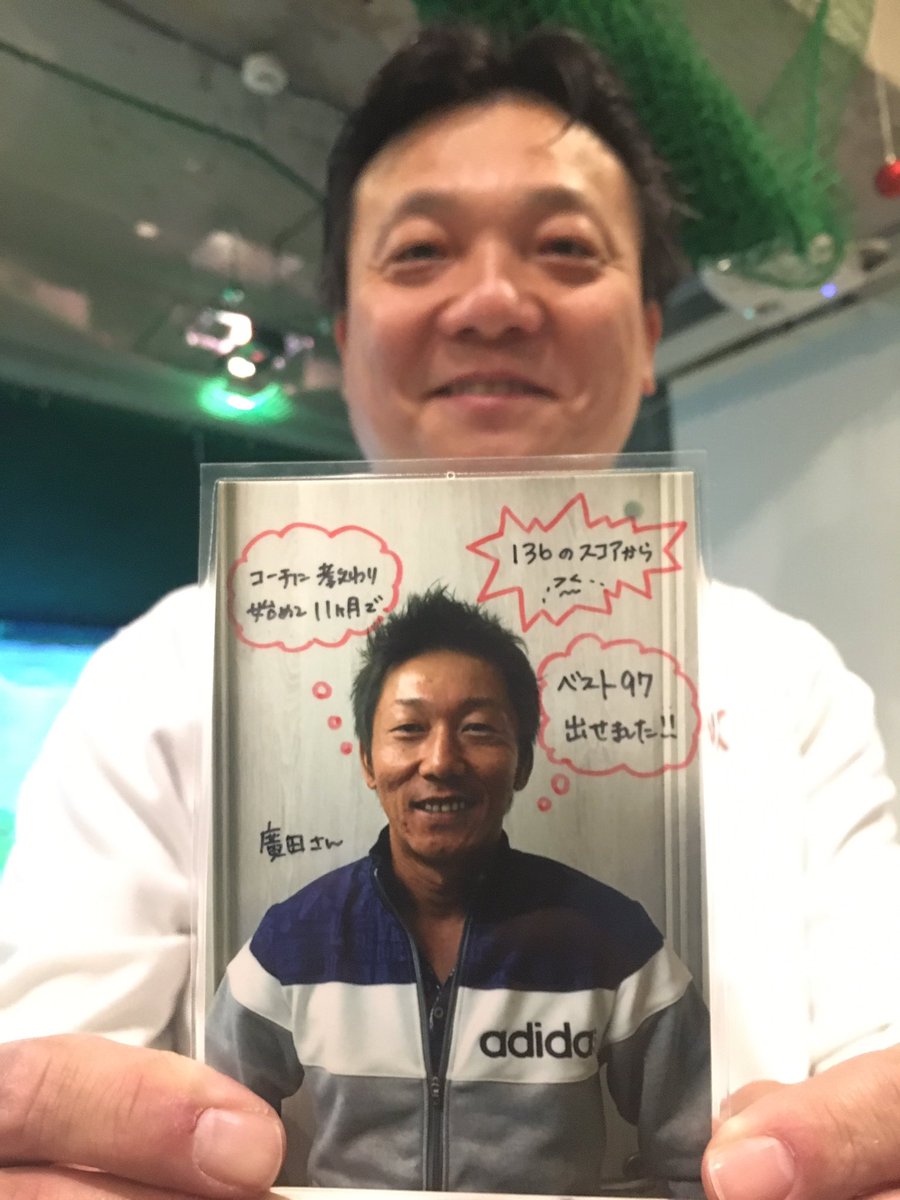 コーチに教わり
始めて11ヶ月で
136のスコアから
ベスト97
出せました!!
廣田さん
adidas